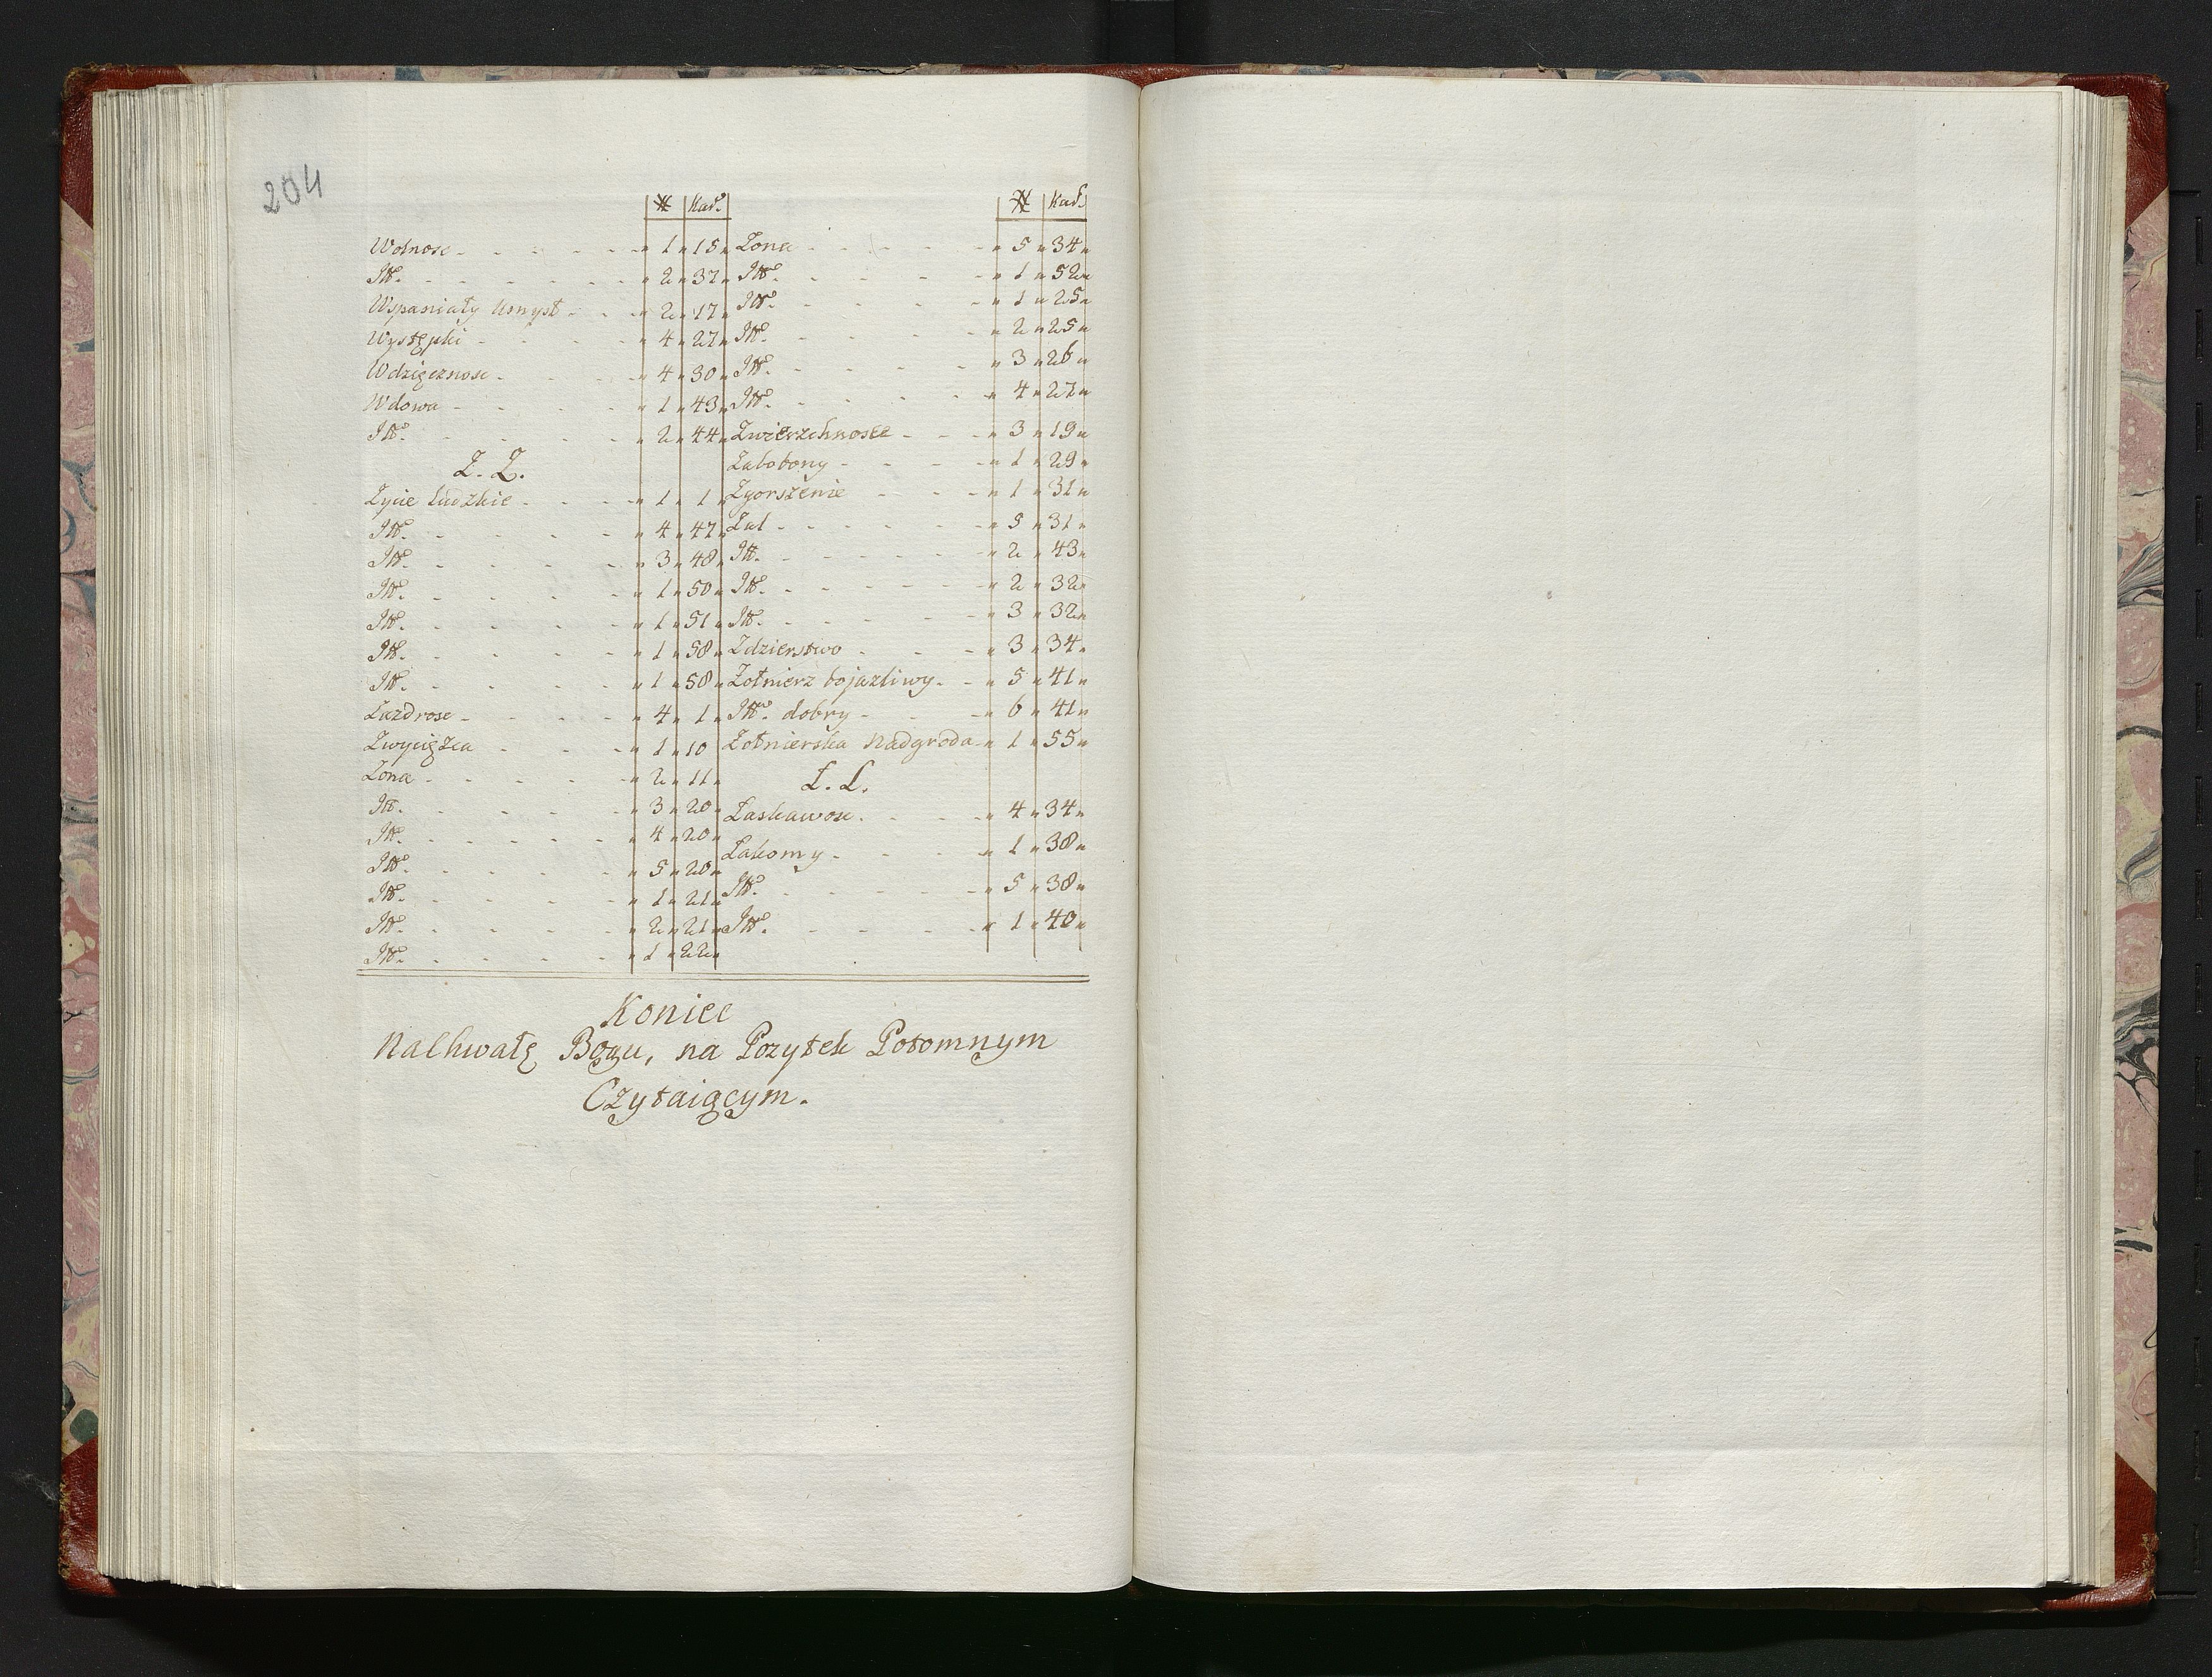 204
№ Kart.
Wolnosc - - - - - 1 15
Itt. - - - - - 2 37
Wspaniały Umysł - - - 2 17
Występki - - - - 4 27
Wdzięcznosc - - - - 4 30
Wdowa - - - - 1 43
Itt. - - - - 2 44
Z. Z.
Zycie Ludzkie - - - - 1 1
Itt. - - - - 4 47
Itt. - - - - 3 48
Itt. - - - - 1 50
Itt. - - - - 1 51
Itt. - - - - 1 58
Itt. - - - - 1 58
Zazdrosc - - - - 4 1
Zwycięzca - - - - 1 10
Zona - - - - 2 11
Itt. - - - - 3 20
Itt. - - - - 4 20
Itt. - - - - 5 20
Itt. - - - - 1 21
Itt. - - - - 2 21
Itt. - - - - 1 22
№ Kart.
Zona - - - - 5 34
Itt. - - - - 1 52
Itt. - - - - 1 25
Itt. - - - - 2 25
Itt. - - - - 3 26
Itt. - - - - 4 27
Zwierzchnosce - - - 3 19
Zabobony - - - 1 29
Zgorszenie - - - 1 31
Zal - - - - - 5 31
Itt. - - - - - 2 43
Itt. - - - - - 2 32
Itt. - - - - - 3 32
Zdzierstwo - - - 3 34
Zołnierz bojazliwy - - 5 41
Itt. dobry - - - 6 41
Zołnierska Nadgroda - 1 55
Ł. Ł.
Łaskawosc - - - 4 34
Łakomy - - - 1 38
Itt. - - - - 5 38
Itt. - - - - 1 40
Koniec
Na Chwałę Bogu, na Pozytek Potomnym
Czytaiącym.